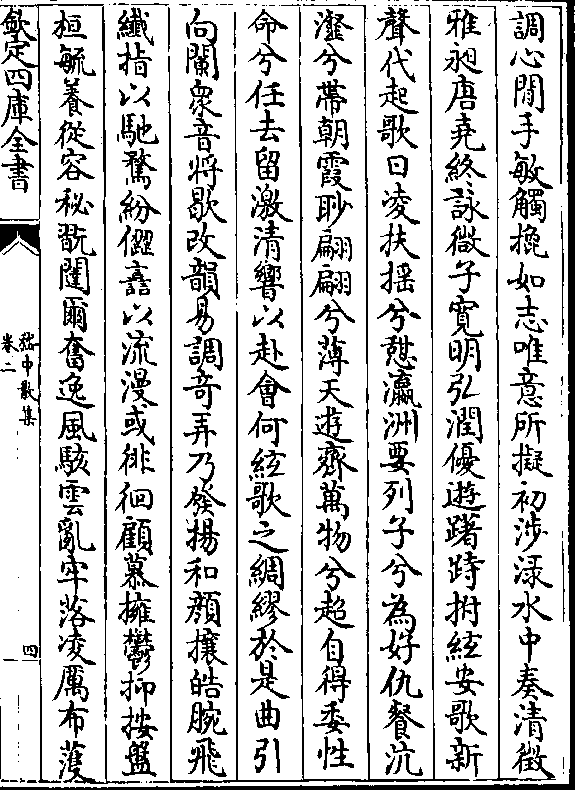 調心閒手敏觸㧌如志唯意所擬初涉淥水中奏清徵
雅昶唐堯終詠微子寛明弘潤優遊躇跱拊絃安歌新
聲代起歌曰凌扶揺兮憇瀛洲要列子兮為好仇餐沆
瀣兮帶朝霞眇翩翩兮薄天遊齊萬物兮超自得委性
命兮任去留激清響以赴會何絃歌之綢繆於是曲引
向闌衆音將歇改韻易調竒弄乃發揚和顔攘皓腕飛
纖指以馳騖紛㒊譶以流漫或徘徊顧慕擁鬱抑按盤
桓毓養從容秘翫闥爾奮逸風駭雲亂牢落凌厲布濩
欽定四庫全書
嵇中散集
卷二
四